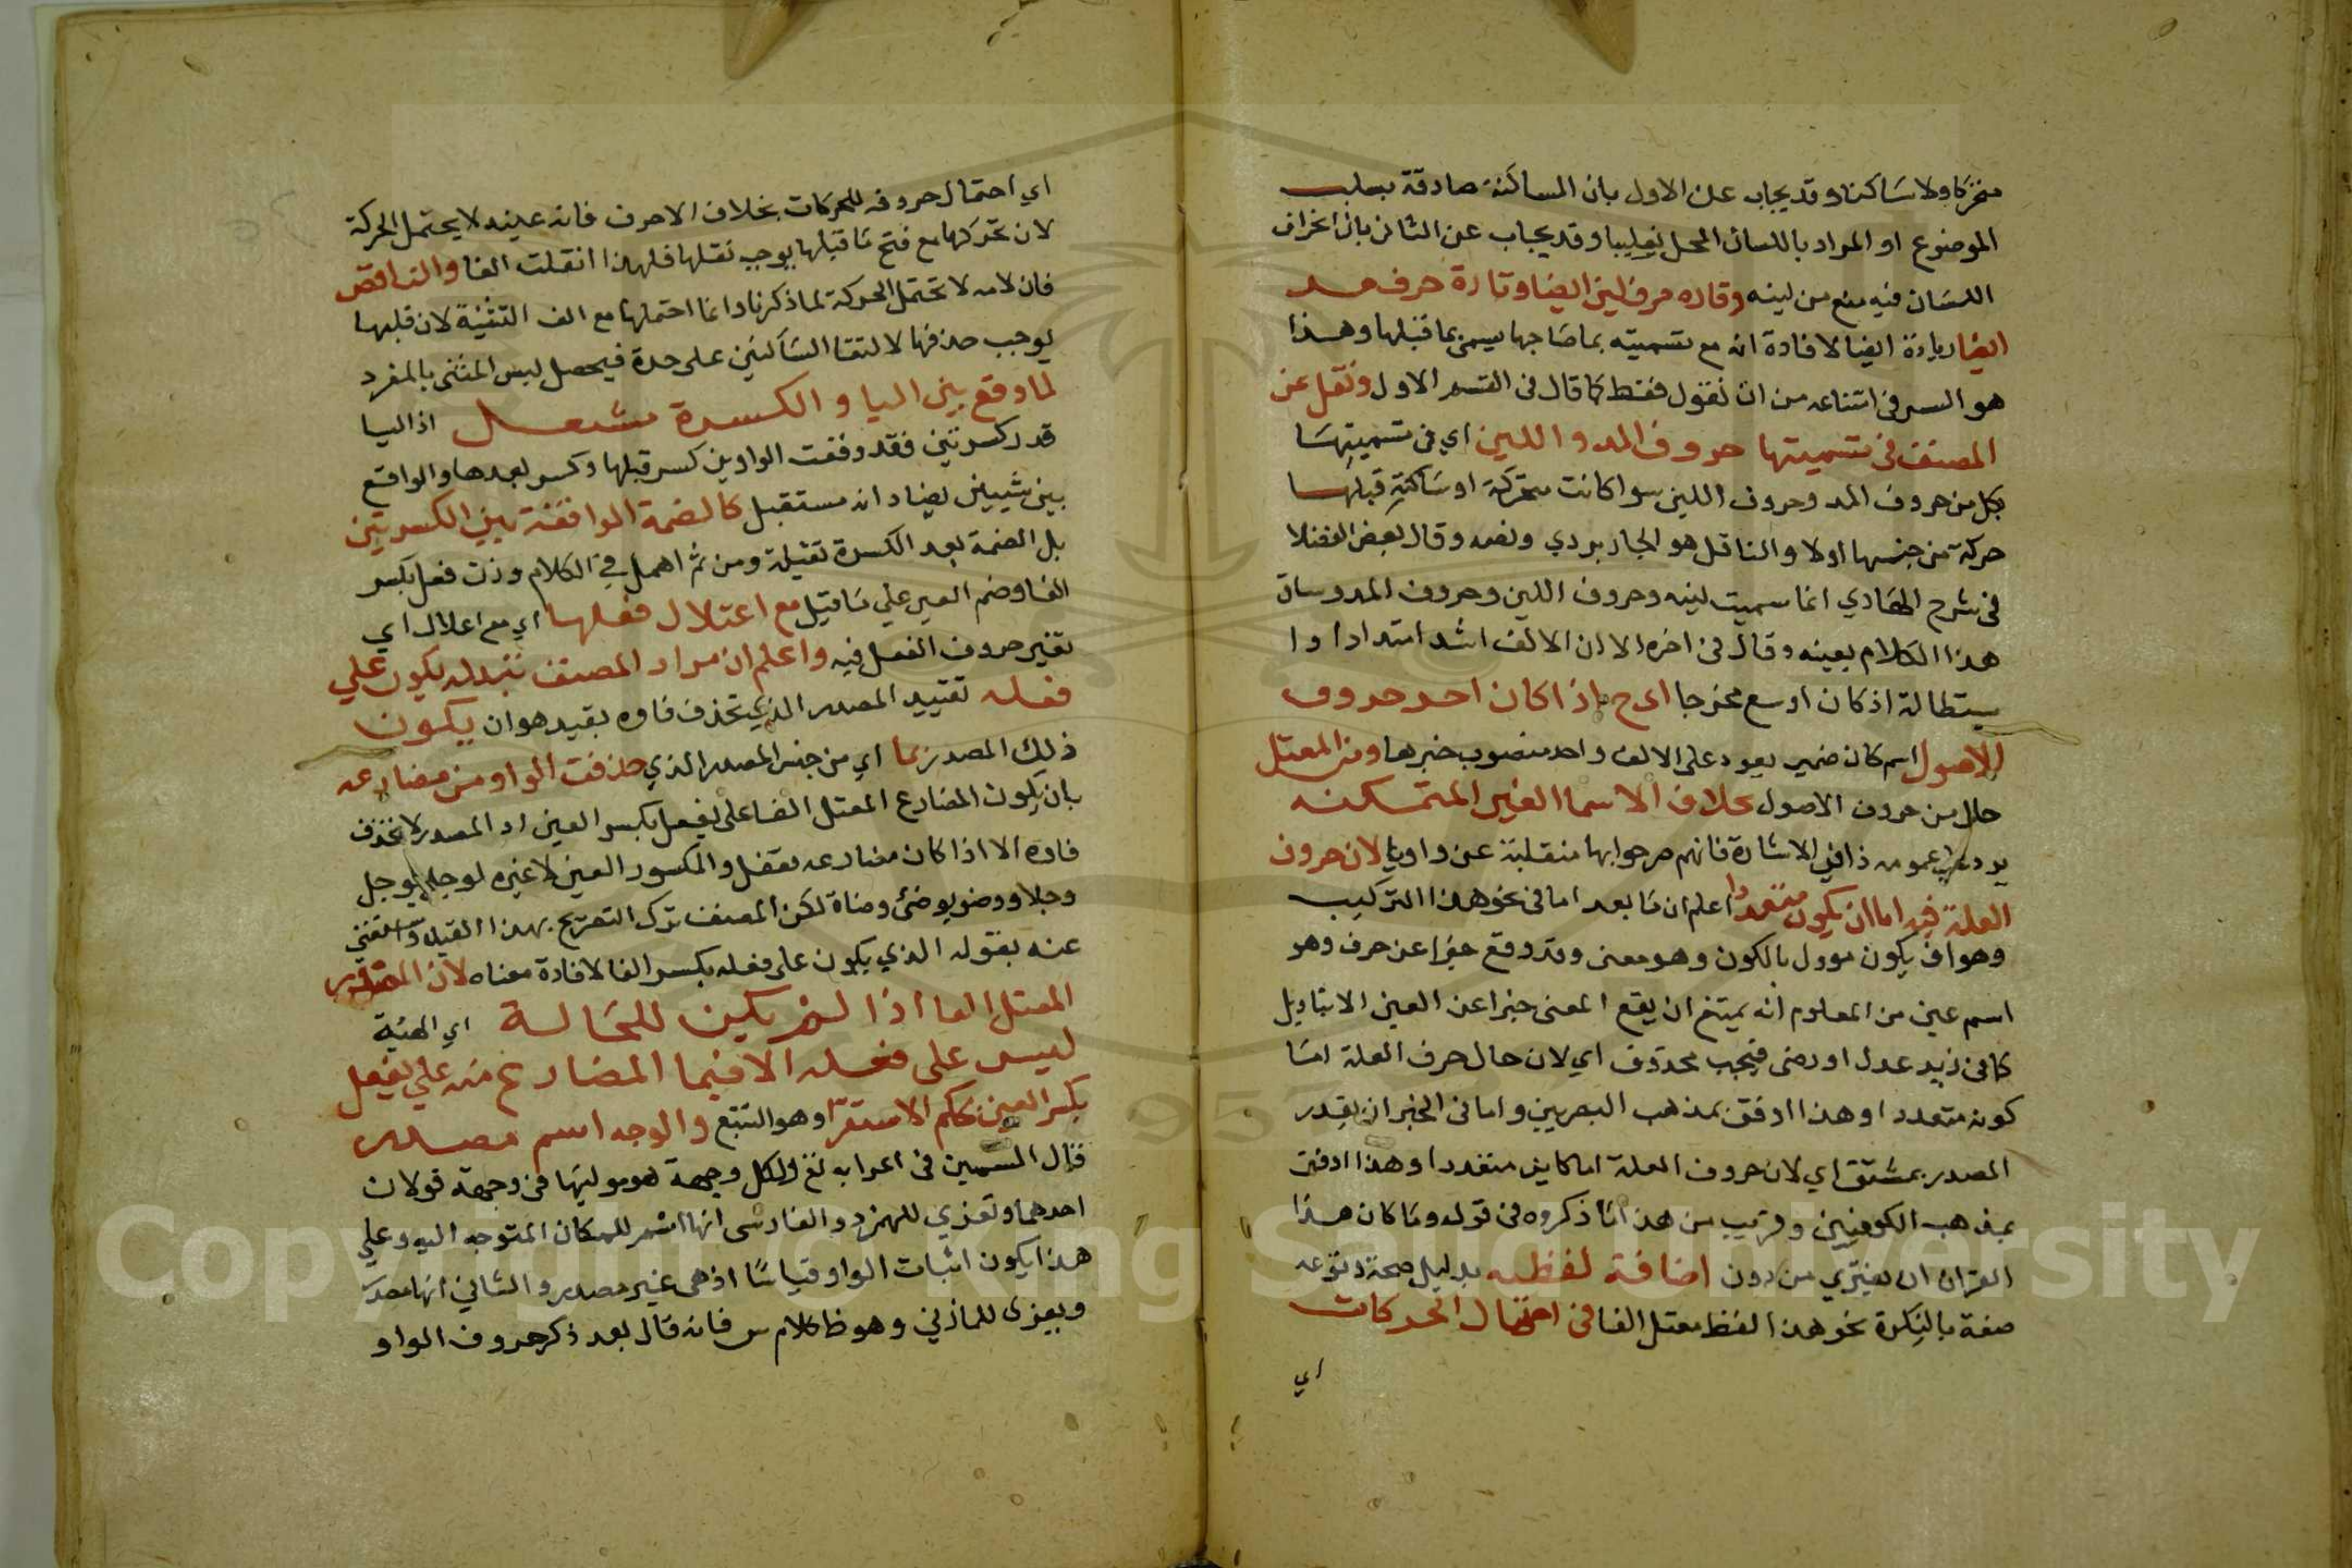 متحركا ولا ساكنا وقد يجاب عن الاول بان السالبة صادقة بسلب
الموضوع او المراد باللسان المحل تغليبا وقد يجاب عن الثاني بان انحراف
اللسان فيه منع من لينه وتارة حرف لين ايضا وتارة حرف مد
ايضا زيادة ايضا لافادة انه مع تسميته بما صاحبها يسمى بما قبلها وهذا
هو السر في امتناعه من ان نقول فقط كما قال في القسم الاول ونقل عن
المصنف في تسميتها حروف المد واللين اي في تسميتها
بكل من حروف المد وحروف اللين سوا كانت متحركة او ساكنة قبلها
حركة من جنسها اولا والناقل هو الجاربردي ونصه وقال بعض الفضلا
في شرح الهادي انما سميت لينه وحروف اللين وحروف المد وساق
هذا الكلام بعينه وقال في اخره الا ان الالف اشد امتدادا وا
ستطالة اذ كان اوسع مخرجا اي ح اذا كان احد حروف
الاصول اسم كان ضمير يعود على الالف واحد منصوب خبرها ومن المعتل
حال من حروف الاصول بخلاف الاسما الغير المتمكنه
يرد على عمومه ذا في الاشارة فانهم صرحوا بها منقلبة عن واو يا لان حروف
العلة فيه اما ان يكون متعددا اعلم ان ما بعد اما في نحو هذا التركيب
وهو ان يكون موول بالكون وهو معنى وقد وقع خبرا عن حرف وهو
اسم عين من المعلوم انه يمتنع ان يقع المعنى خبرا عن العين الا بتاويل
كما في زيد عدل او رضى فيجب محذوف اي لان حال حرف العلة اما
كونه متعددا وهذا اوفق بمذهب البصريين واما في الخبر ان يقدر
المصدر بمشتق اي لان حروف العلة اما كاين متعددا وهذا اوفق
بمذهب الكوفيين وقريب من هذا ما ذكروه في قوله وما كان هذا
القران ان يفترى من دون اضافة لفظيه بدليل صحة وقوعه
صفة بالنكرة نحو هذا لفظ معتل الفا في احتمال الحركات
اي
اي احتمال حروفه للحركات بخلاف الاجوف فانه عينه لا يحتمل الحركة
لان تحركها مع فتح ما قبلها يوجب نقلها فلهذا انقلبت الفا والناقص
فان لامه لا تحتمل الحركة لما ذكرنا وانما احتملها مع الف التثنية لان قلبها
يوجب حذفها لالتقا الساكنين على حدة فيحصل لبس المثنى بالمفرد
لما وقع بين اليا والكسرة اذ اليا
قدر كسرتين فقد وقعت الواو بين كسر قبلها وكسر بعدها والواقع
بين شيين كالضمة الواقعة بين الكسرتين
بل الضمة بعد الكسرة ثقيلة ومن ثم اهمل في الكلام وزن فعل بكسر
الفا وضم العين على ما قيل مع اعتلال فعلها اي مع اعلال اي
تغير حروف الفعل فيه واعلم ان مراد المصنف بقوله يكون على
فعله تقييد المصدر الذي تحذف فاوه بقيد هو ان يكون
ذلك المصدر مما اي من جنس المصدر الذي حذفت الواو من مضارعه
بان يكون المضارع المعتل الفا على يفعل بكسر العين اذ المصدر لا تحذف
فاوه الا اذا كان مضارعه يفعل والمكسور العين لا غيره لوجل يوجل
وجلا ووضو يوضئ وضاة لكن المصنف ترك التصريح بهذا القيد واستغنى
عنه بقوله الذي يكون على فعله بكسر الفا لافادة معناه لان المصدر
المعتل الفا اذا لم يكن للحالة اي الهيئة
ليس على فعله الا فيما المضارع منه على يفعل
بكسر العين بحكم الاستقرا وهو التتبع والوجه اسم مصدر
قال السمين في اعرابه نع ولكل وجهة هو موليها في وجهة قولان
احدهما وتعزي للمبرد والفارسي انها اسم للمكان المتوجه اليه وعلى
هذا يكون اثبات الواو قياسا اذ هي غير مصدر والثاني انها مصدر
ويعزى للمازني وهو ظ كلام س فانه قال بعد ذكر حروف الواو
Copyright © King Saud University